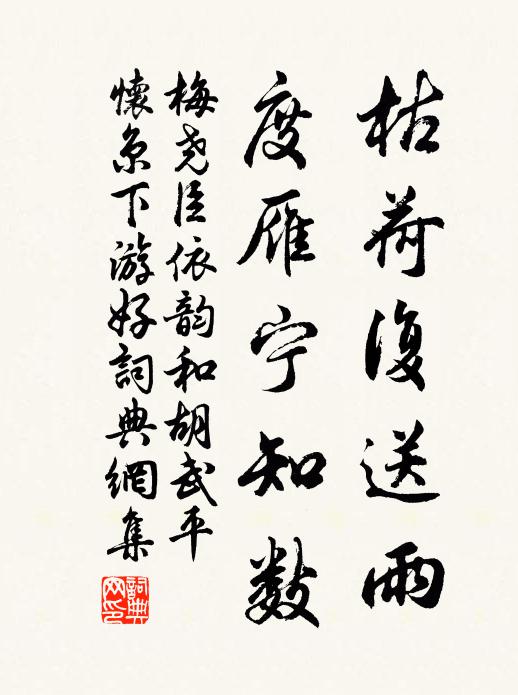 枯荷復送雨
度雁宁知数
梅尧臣依韵和胡武平
懐京下游好詞典網集
詞典
网印